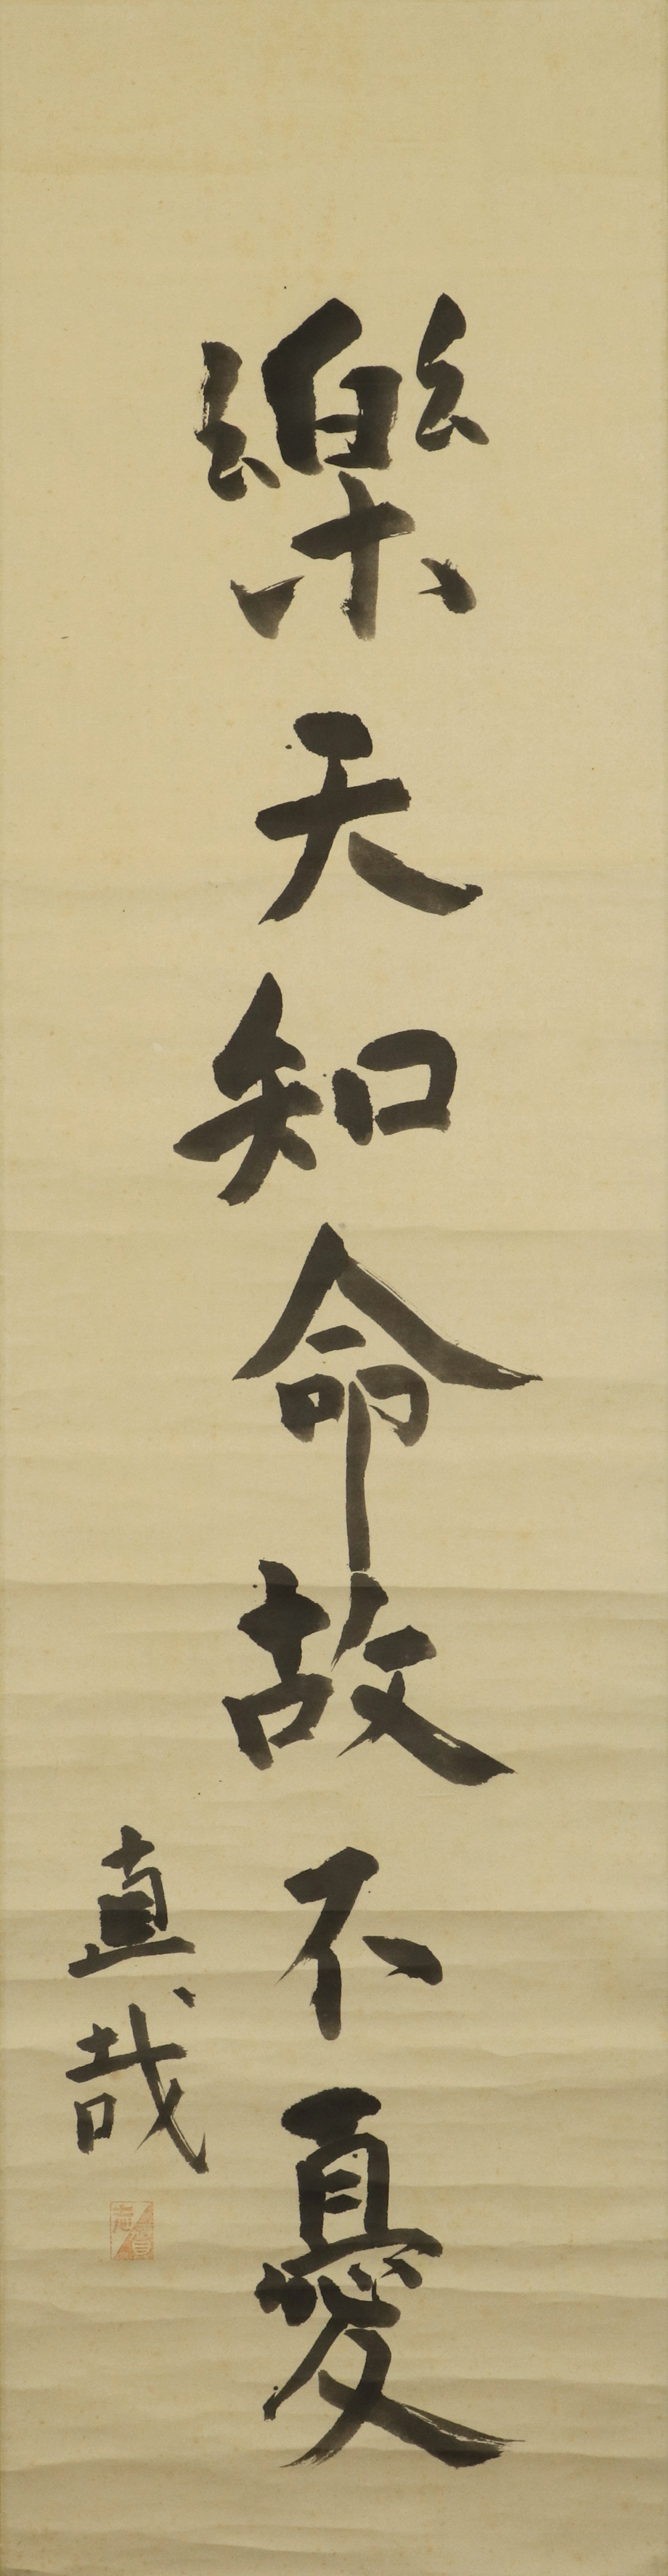 樂天知命故不憂
直哉